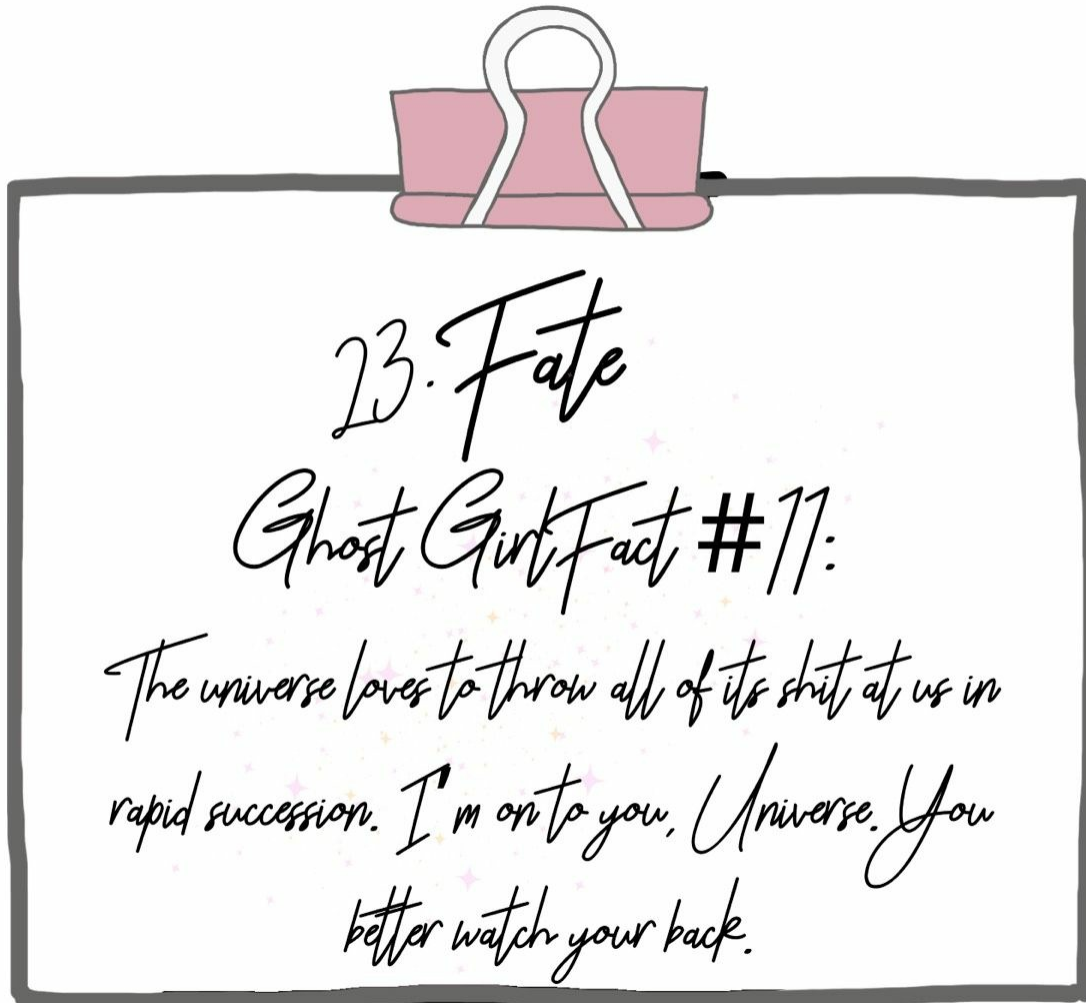 23. Fate
Ghost Girl Fact #11:
The universe loves to throw all of its shit at us in
rapid succession. I'm on to you, Universe. You
better watch your back.